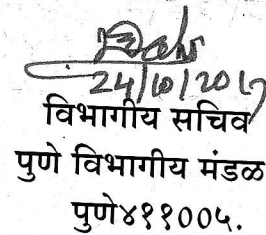 24/10/2017
विभागीय सचिव
पुणे विभागीय मंडळ
पुणे४११००५.